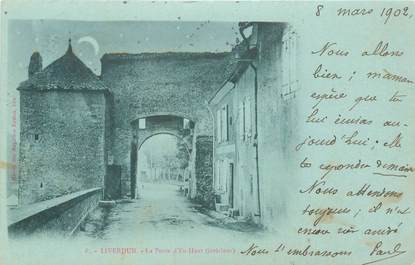 8 mars 1902.
Nous allons
bien ; maman
espère que tu
lui écriras au-
jourd'hui ; elle
te répondra demain
Nous attendons
toujours ; il n'y
encore rien
Nous t'embrassons Paul
LIVERDUN. - La Porte d'En-Haut (intérieur)